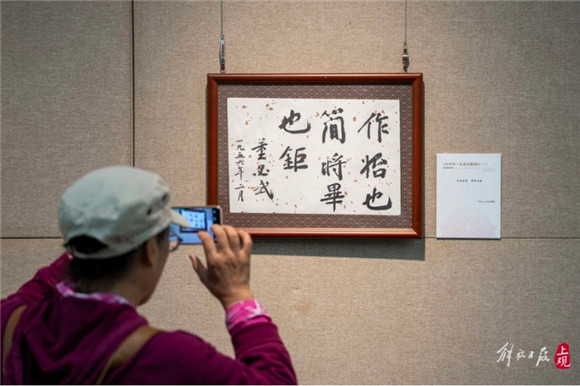 作始也
簡將畢
也鉅
董必武
一九五六年二月
解放日报
上观